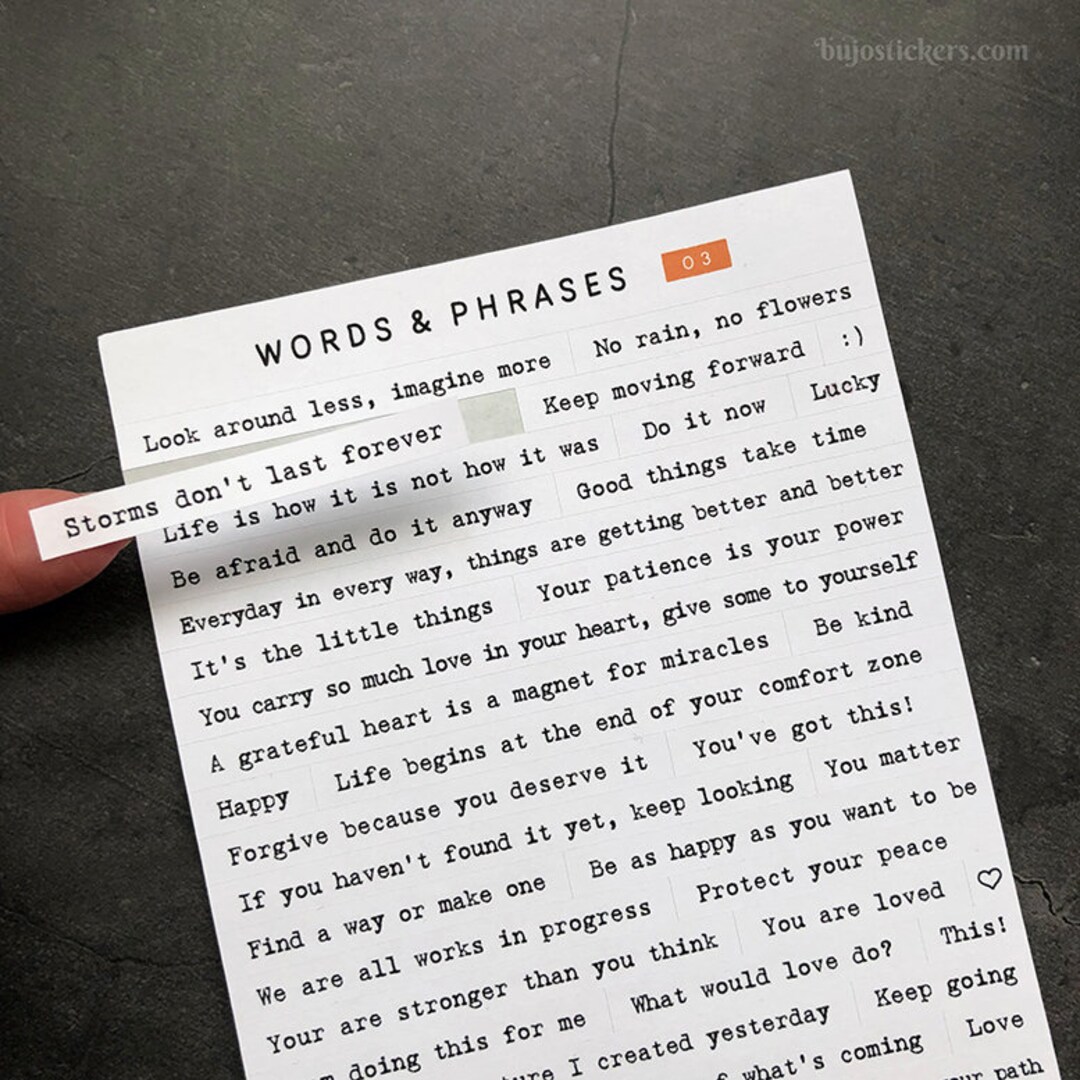 bujostickers.com
WORDS & PHRASES 03
Look around less, imagine more No rain, no flowers
Storms don't last forever Keep moving forward :)
Life is how it is not how it was Do it now Lucky
Be afraid and do it anyway Good things take time
Everyday in every way, things are getting better and better
It's the little things Your patience is your power
You carry so much love in your heart, give some to yourself
A grateful heart is a magnet for miracles Be kind
Happy Life begins at the end of your comfort zone
Forgive because you deserve it You've got this!
If you haven't found it yet, keep looking You matter
Find a way or make one Be as happy as you want to be
We are all works in progress Protect your peace
Your are stronger than you think You are loved ♡
doing this for me What would love do? This!
I created yesterday Keep going
what's coming Love
path